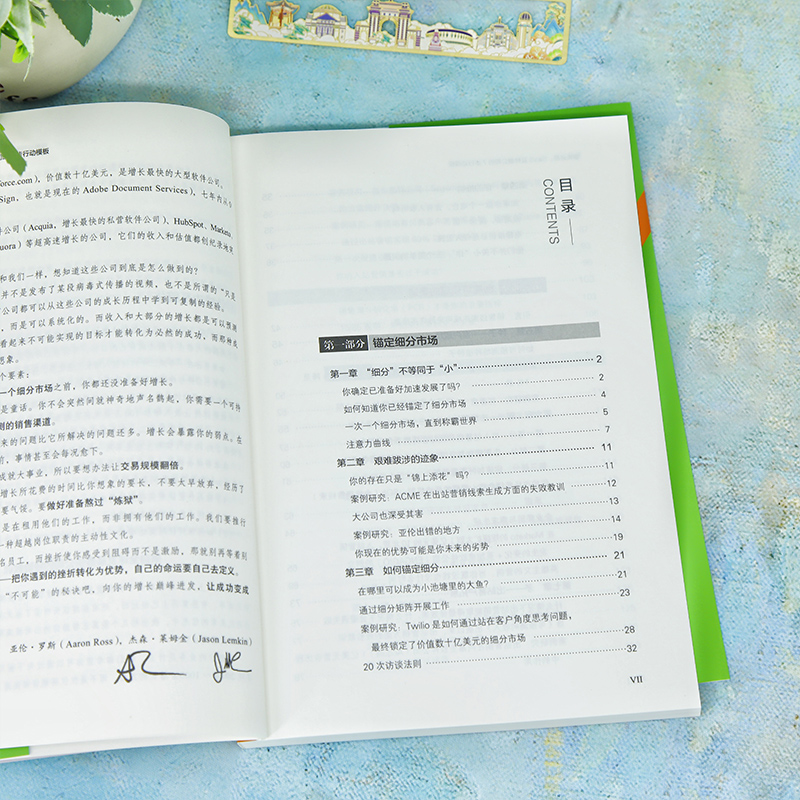 行动模板
force.com），价值数十亿美元，是增长最快的大型软件公司。
Sign，也就是现在的 Adobe Document Services），七年内从
公司（Acquia，增长最快的私营软件公司）、HubSpot、Marketo
uora）等超高速增长的公司，它们的收入和估值都创纪录地突
和我们一样，想知道这些公司到底是怎么做到的？
并不是发布了某段病毒式传播的视频，也不是所谓的“只是
公司都可以从这些公司的成长历程中学到可复制的经验。
，而是可以系统化的。而收入和大部分的增长都是可以预测
看起来不可能实现的目标才能转化为必然的成功，而那种成
想象。
个要素：
一个细分市场之前，你都还没准备好增长。
是童话。你不会突然间就神奇地声名鹊起，你需要一个可持
测的销售渠道。
来的问题比它所解决的问题还多。增长会暴露你的弱点。在
前，事情甚至会每况愈下。
成就大事业，所以要想办法让交易规模翻倍。
增长所花费的时间比你想象的要长，不要太早放弃，经历了
要气馁。要做好准备熬过“炼狱”。
是在租用他们的工作，而非拥有他们的工作。我们要推行
一种超越岗位职责的主动性文化。
名员工，而挫折使你感受到阻碍而不是激励，那就别再等着别
—把你遇到的挫折转化为优势，自己的命运要自己去定义。
“不可能”的秘诀吧，向你的增长巅峰进发，让成功变成
亚伦·罗斯（Aaron Ross）、杰森·莱姆金（Jason Lemkin）
目录
CONTENTS
第一部分 锚定细分市场
第一章 “细分”不等同于“小” 2
你确定已准备好加速发展了吗？ 2
如何知道你已经锚定了细分市场 4
一次一个细分市场，直到称霸世界 5
注意力曲线 7
第二章 艰难跋涉的迹象 11
你的存在只是“锦上添花”吗？ 11
案例研究：ACME 在出站营销线索生成方面的失败教训 12
大公司也深受其害 13
案例研究：亚伦出错的地方 14
你现在的优势可能是你未来的劣势 19
第三章 如何锚定细分 21
在哪里可以成为小池塘里的大鱼？ 21
通过细分矩阵开展工作 23
案例研究：Twilio 是如何通过站在客户角度思考问题，
最终锁定了价值数十亿美元的细分市场 28
20 次访谈法则 32
VII